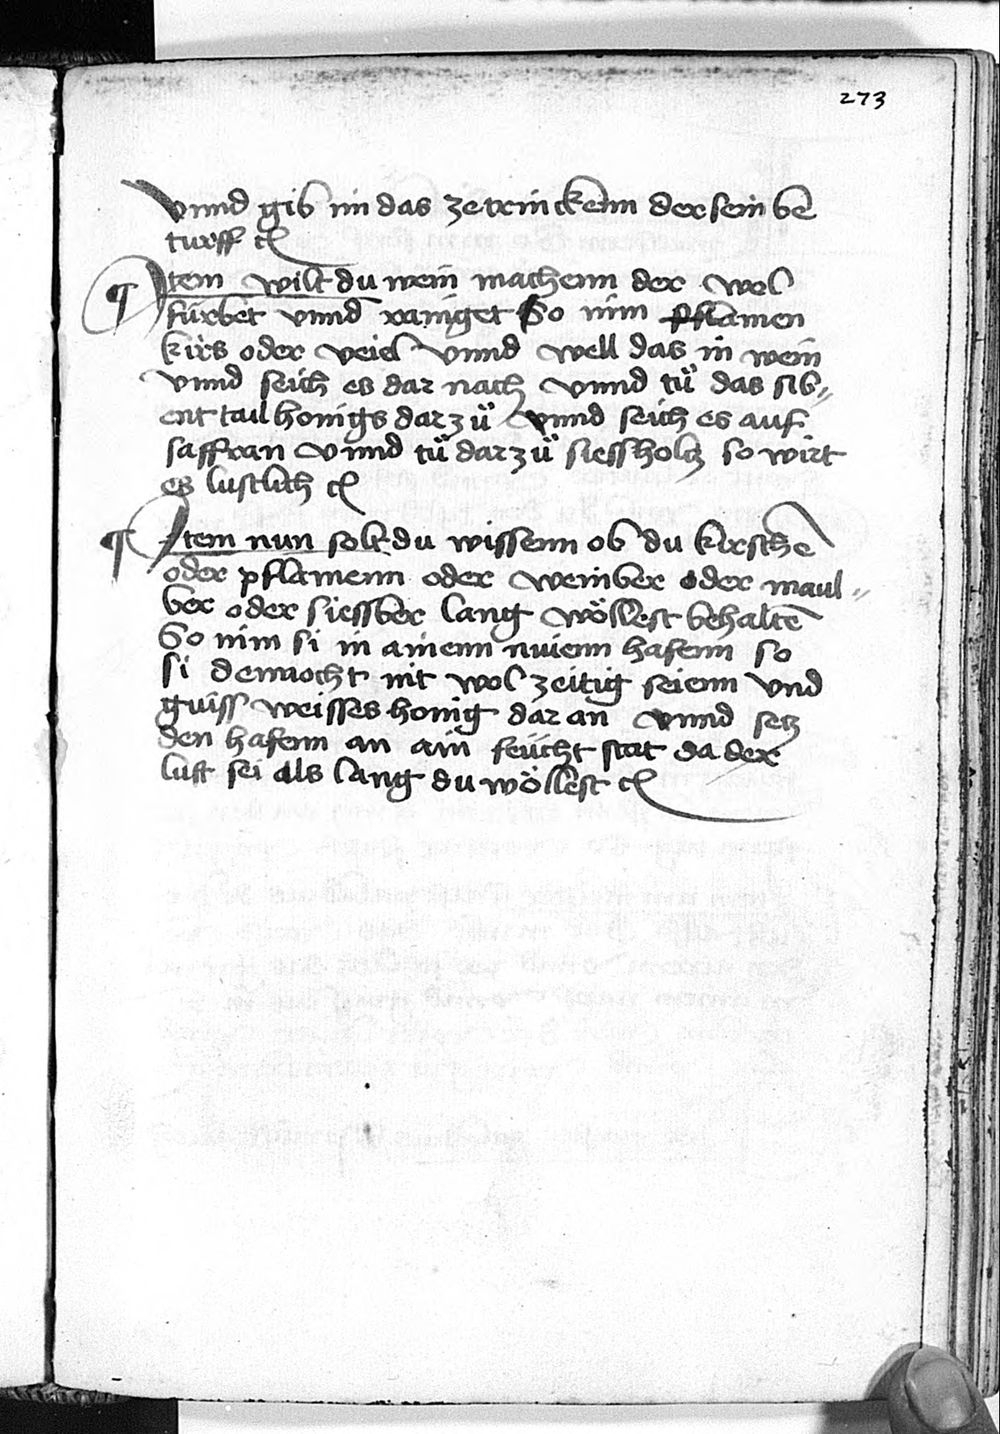 273
Vnnd gib im das ze trinckenn der sein be
turff etc
¶ Jtem wilt du wein machenn der wol
fürbet vnnd rainiget So nim pflamen
kirs oder veiel vnnd well das in wein
vnnd seich es dar nach vnnd tů das sib⸗
ent tail honigs dar zů vnnd seich es auf
saffran vnnd tů dar zů siessholtz so wirt
es lustlich etc
¶ Jtem nun solt du wissenn ob du kirschē
oder pflamenn oder weinber oder maul⸗
ber oder siessber lang wöllest behaltē
So nim si in ainenn nuienn hafenn so
si dennocht nit wol zeitig seienn vnd
guiss weisses honig dar an vnnd setz
den hafenn an ain feücht stat da der
luft sei als lang du wöllest etc